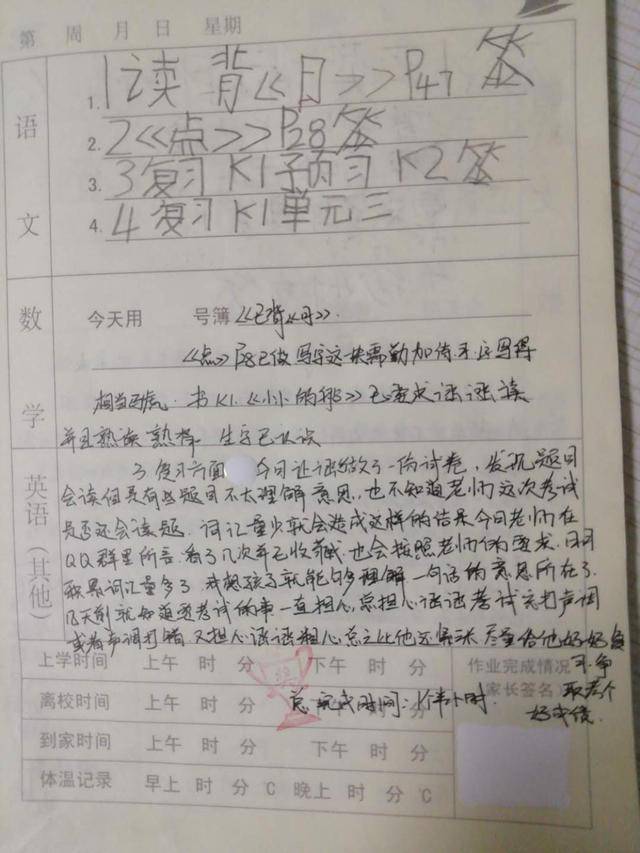 第 周 月 日 星期
语文
1. 1读 背《日》P47 签
2. 2《点》P28签
3. 3复习 K1预习 K2签
4. 4复习K1单元三
数学
今天用 号簿《已背《日》.
《点》P28已做 写字这块需勤加练
书K1.《小小的
并且熟读 生字已认读
英语(其他)
3 复习方面 今日让涵做了一份试卷,发现题目
会读但是有些题目不太理解意思,也不知道老师这次考试
是否还会读题.词汇量少就会造成这样的结果今日老师在
QQ群里所言.看了几次并已收藏.也会按照老师们的要求.日日
积累词汇量多了.我想孩子就能够多理解一句话的意思所在了.
几天前就知道要考试的事一直担心,总担心涵涵考试忘打声调
或者声调打错.又担心涵涵粗心,总之让他还需 尽量给他好好复
习.争
取考个
好成绩.
总完成时间:1个半小时.
上学时间 上午 时 分 下午 时 分
离校时间 上午 时 分
到家时间 上午 时 分 下午 时 分
体温记录 早上 时 分 C 晚上 时 分 C
作业完成情况
家长签名
奖